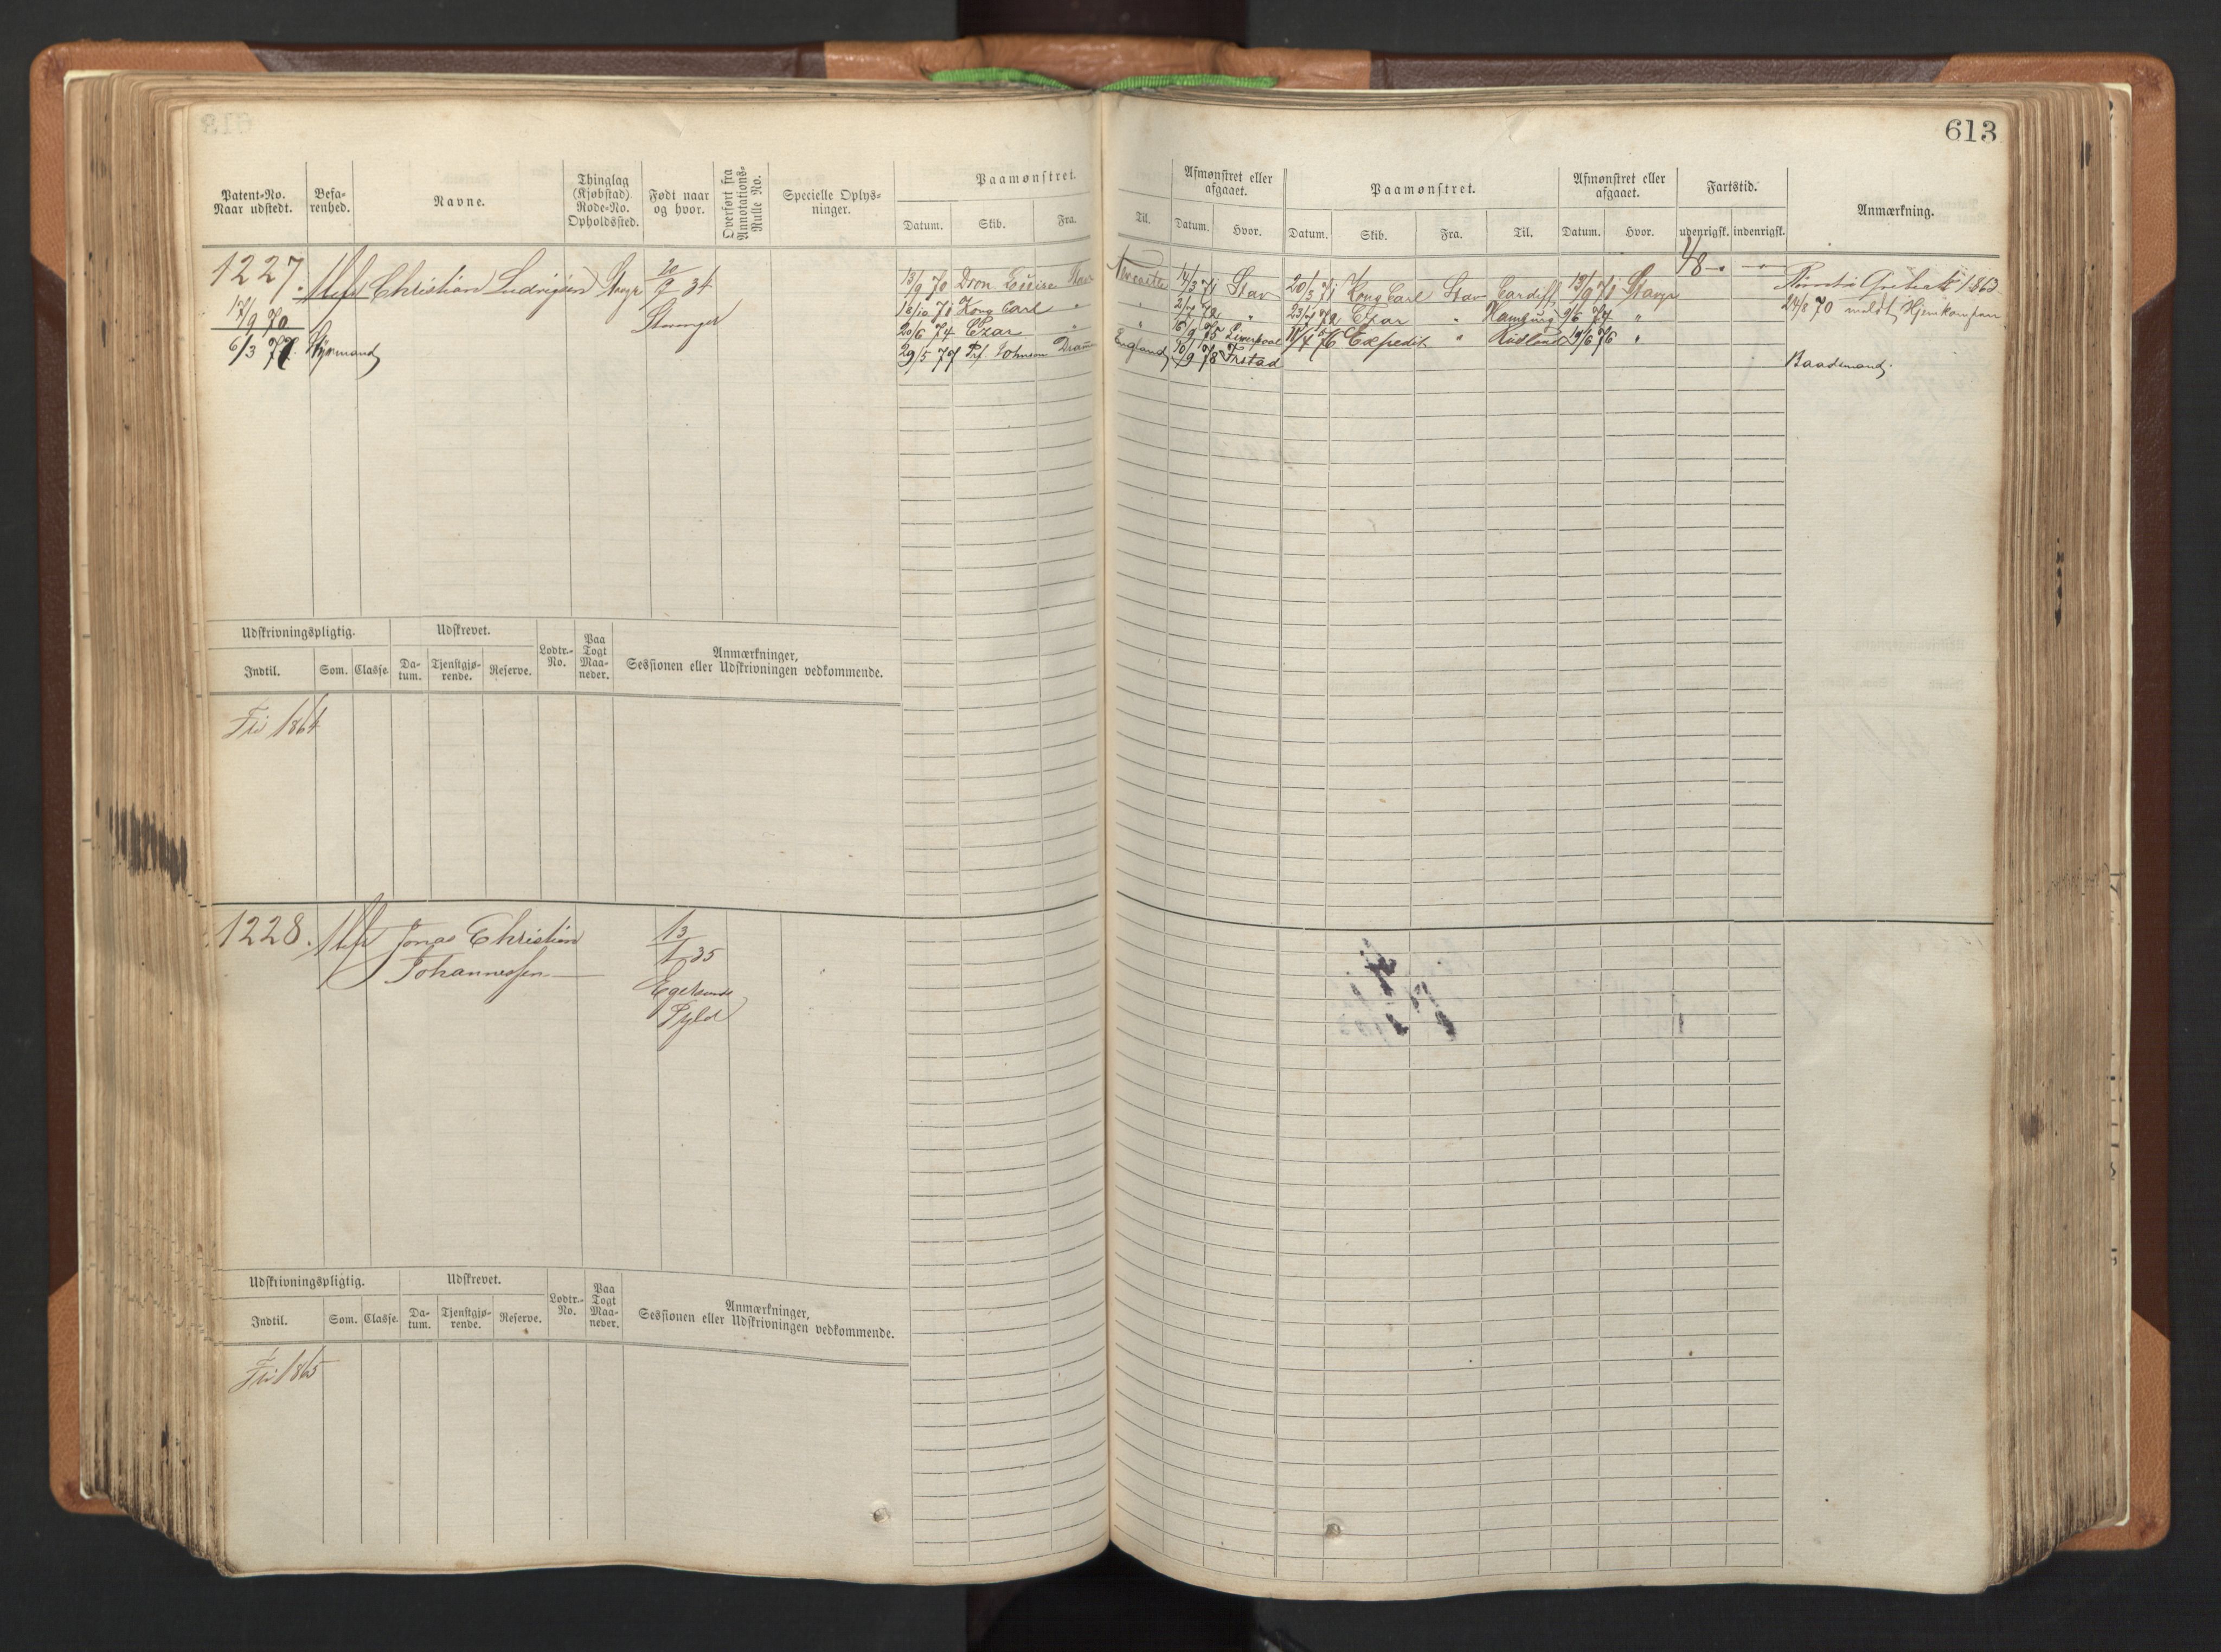 613
Patent-No. Naar udstedt.
Befarenhed.
Navne.
Thinglag (Kjøbstad) Rode-No. Opholdssted.
Født naar og hvor.
Overført fra Annotations-Rulle No.
Specielle Oplysninger.
Paamønstret.
Datum. Skib. Fra. Til.
Afmønstret eller afgaaet.
Datum. Hvor.
Paamønstret.
Datum. Skib. Fra. Til.
Afmønstret eller afgaaet.
Datum. Hvor.
Fartstid.
udenrigsk. indenrigsk.
Anmærkning.
1227. Christian Ludvigsen Stavgr 20/9 34
Stavanger
17/9 70
6/3 77 Styrmand
13/9 70 Dron. Louise Stav Newcastle 14/3 71 Stav 20/3 71 Kong Carl Stav Cardiff 13/9 71 Stavgr 48
1863
16/10 71 Kong Carl " " 2/7 72 " Czar " Hamburg "
24/8 70 meldt Hjemkommen
20/6 74 Czar " " Liverpool Expedit " 19/6 76 "
29/5 77 Johnson Dram England 10/9 78 Frstad
Baadsmand
Udskrivningspligtig.
Indtil. Som. Classe.
Udskrevet.
Datum. Tjenstgjørende. Reserve.
Lodtr.-No.
Paa Togt Maaneder.
Anmærkninger, Sessionen eller Udskrivningen vedkommende.
Fri 1864
1228. Jonas Christian 13/1 35
Johannessen
Egersund
Udskrivningspligtig.
Indtil. Som. Classe.
Udskrevet.
Datum. Tjenstgjørende. Reserve.
Lodtr.-No.
Paa Togt Maaneder.
Anmærkninger, Sessionen eller Udskrivningen vedkommende.
Fri 1865